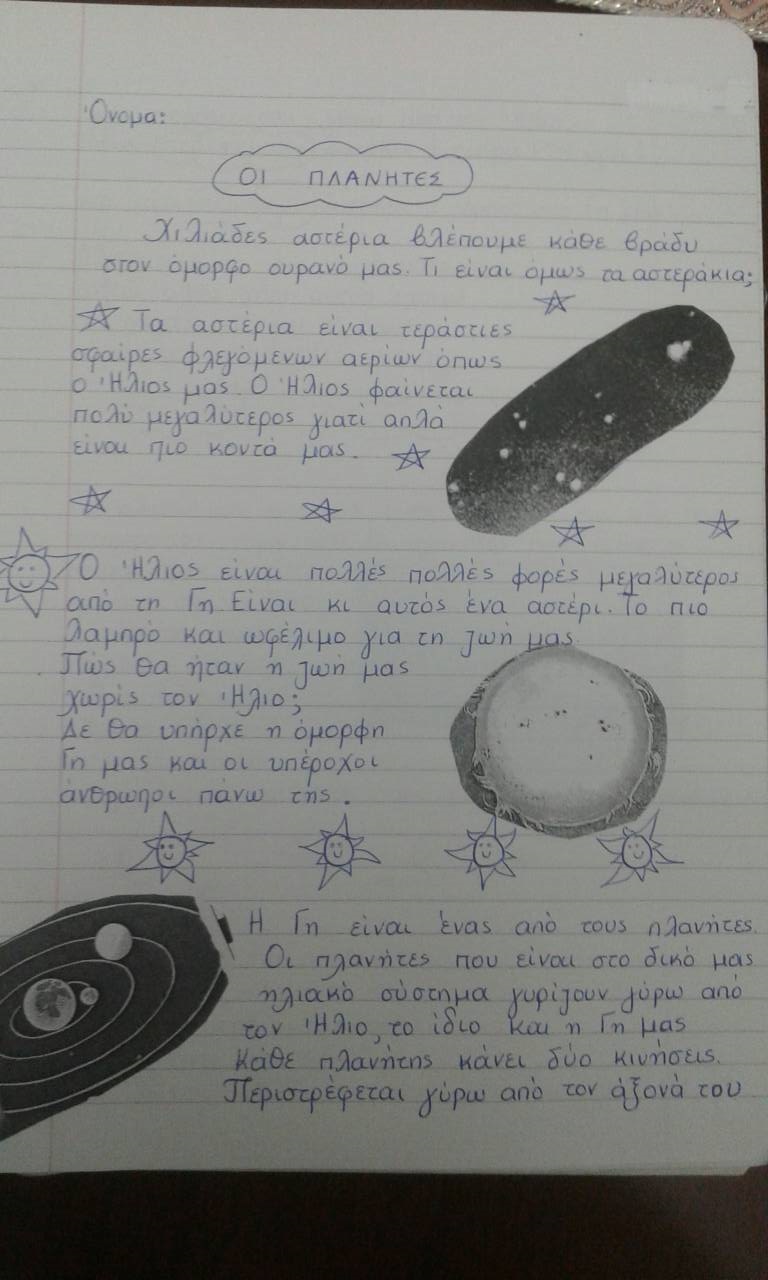 Όνομα:
ΟΙ ΠΛΑΝΗΤΕΣ
Χιλιάδες αστέρια βλέπουμε κάθε βράδυ
στον όμορφο ουρανό μας. Τι είναι όμως τα αστεράκια;
Τα αστέρια είναι τεράστιες
σφαίρες φλεγόμενων αερίων όπως
ο Ήλιος μας. Ο Ήλιος φαίνεται
πολύ μεγαλύτερος γιατί απλά
είναι πιο κοντά μας.
Ο Ήλιος είναι πολλές πολλές φορές μεγαλύτερος
από τη Γη Είναι κι αυτός ένα αστέρι. Το πιο
λαμπρό και ωφέλιμο για τη ζωή μας.
Πώς θα ήταν η ζωή μας
χωρίς τον Ήλιο;
Δε θα υπήρχε η όμορφη
Γη μας και οι υπέροχοι
άνθρωποι πάνω της.
Η Γη είναι ένας από τους πλανήτες.
Οι πλανήτες που είναι στο δικό μας
ηλιακό σύστημα γυρίζουν γύρω από
τον Ήλιο, το ίδιο και η Γη μας
Κάθε πλανήτης κάνει δύο κινήσεις.
Περιστρέφεται γύρω από τον άξονά του